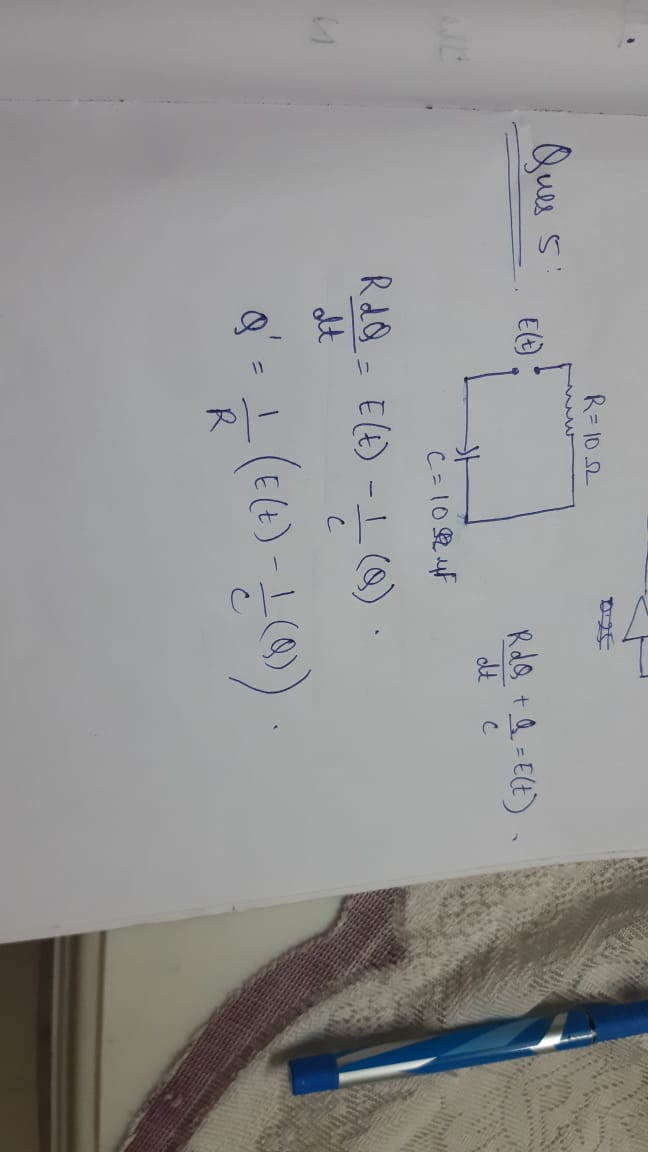 Ques 5:
R = 10 Ω
E(t)
C = 10 μF
R dQ/dt + Q/C = E(t).
R dQ/dt = E(t) - 1/C (Q).
Q' = 1/R (E(t) - 1/C (Q)).